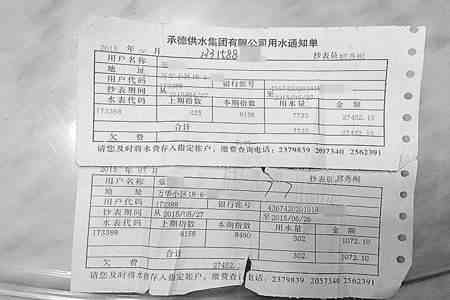 承德供水集团有限公司用水通知单
2015 年 月 1231588 抄表员
用户名称
地 址 万华小区18-6
用户代码 173388 银行帐号
抄表期间 从 至 2015/05/27
水表代码 上期指数 本期指数 用水量 金 额
173388 425 8158 7733 27452.10
合计 7733 27452.10
欠 费
请您及时将水费存入指定帐户,缴费查询电话:2379839 2057340 2562391
2015 年 07 月 抄表员
用户名称
地 址 万华小区18-6
用户代码 173388 银行帐号
抄表期间 从 2015/05/27 至 2015/06/26
水表代码 上期指数 本期指数 用水量 金 额
173388 8158 8460 302 1072.10
合计 302 1072.10
欠 费 27452.
请您及时将水费存入指定帐户,缴费查询电话:2379839 2057340 2562391